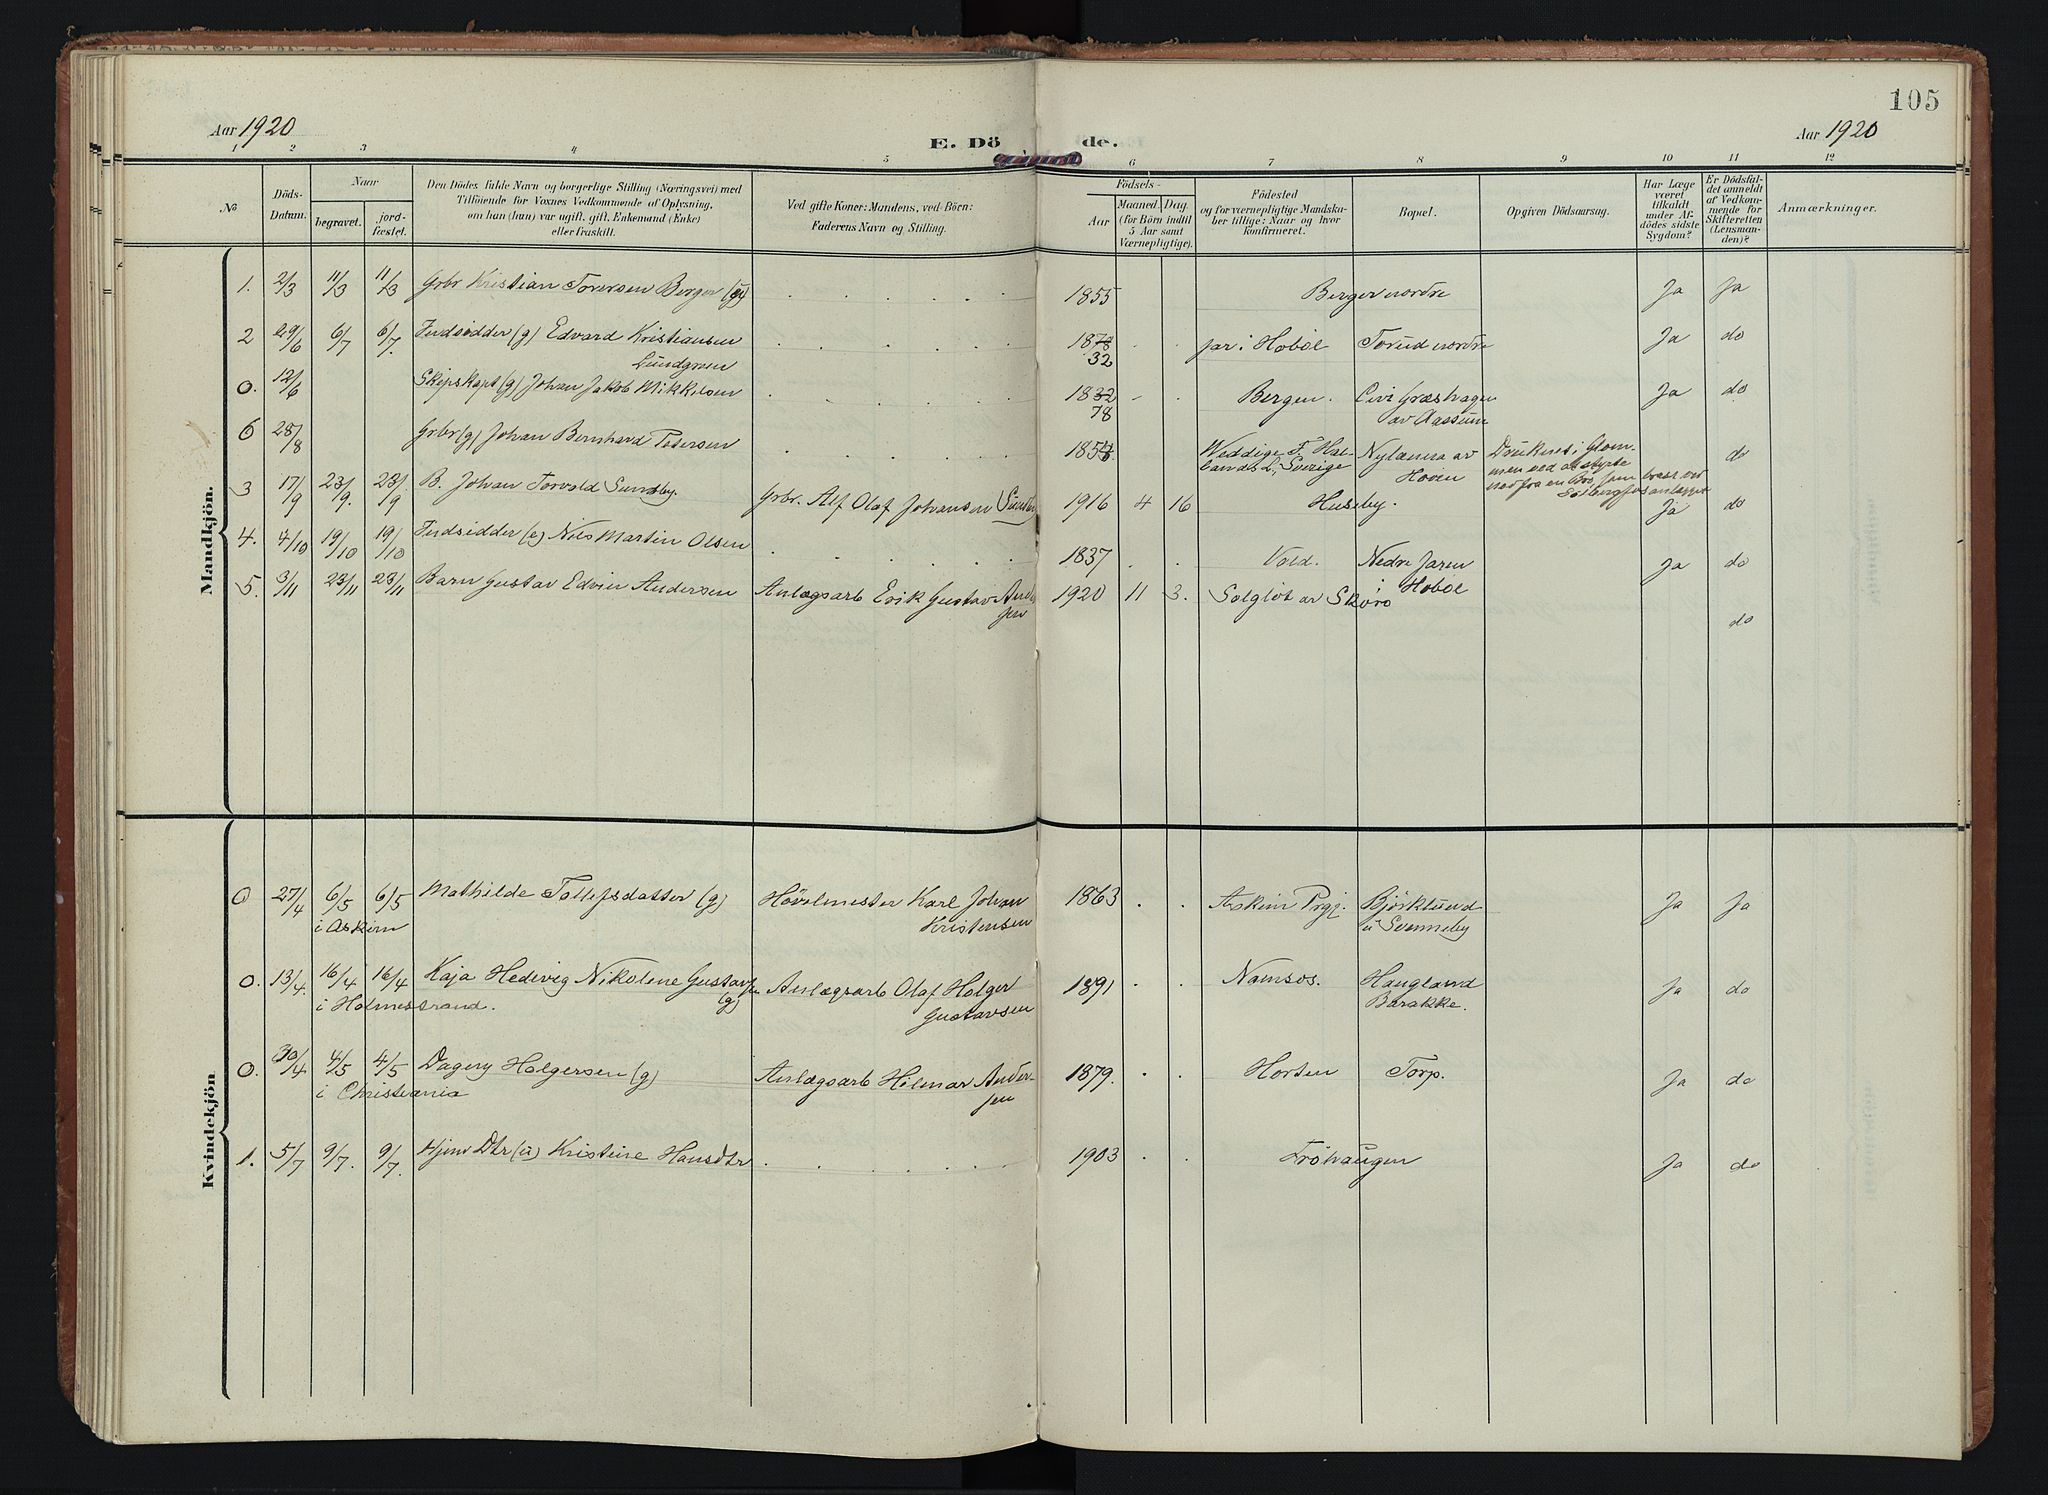 105
Aar 1920
E. Döde.
Aar 1920
1 2 3 4 5 6 7 8 9 10 11 12
No
Döds-Datum.
Naar
begravet.
jord-fæstet.
Den Dödes fulde Navn og borgerlige Stilling (Næringsvei) med
Tilföiende for Voxnes Vedkommende af Oplysning,
om han (hun) var ugift, gift, Enkemand (Enke)
eller fraskilt.
Ved gifte Koner: Mandens, ved Börn:
Faderens Navn og Stilling.
Födsels-
Aar
Maaned. Dag.
(for Börn indtil
5 Aar samt
Værnepligtige).
Födested
og for værnepligtige Mandska-
ber tillige: Naar og hvor
konfirmeret.
Bopæl.
Opgiven Dödsaarsag.
Har Læge
været
tilkaldt
under Af-
dödes sidste
Sygdom?
Er Dödsfal-
det anmeldt
af Vedkom-
mende for
Skifteretten
(Lensman-
den)?
Anmærkninger.
Mandkjön.
1. 2/3 11/3 11/3 Grbr Kristian Torersen Berger (g) 1855 Berger nordre Ja Ja
2 29/6 6/7 6/7. Indsidder (g) Edvard Kristiansen 1878 par i Hobøl Torud nordre Ja do
Lundgreen 32
0. 12/6 Skipskapt (g) Johan Jakob Mikkelsen 1832 Bergen. Græshagen Ja do
78 av Aassum
6 28/8 Grbr (g) Johan Bernhard Petersen Weddige F. Hal- Nylænna av Druknet i Glom- do
lands L. Sverige Hoven men ved at styrte
ned fra en Bro, som
3 17/9 23/9. 23/9 B. Johan Torvald Sundby. Grbr. Alf Olaf Johansen Sundby 1916 4 16 Huseby. Ja do
4. 4/10 19/10 19/10 Indsidder (e) Nils Martin Olsen 1837 Vold. Nedre Jaren Ja do
Hobøl
5. 3/11 23/11 23/11 Barn Gustav Edvin Andersen Anlægsarb Erik Gustav Ander- 1920 11 3. Solgløt av Skøro
sen do
Kvindekjön
0 27/4 6/5 6/5 Mathilde Tollefsdatter (g) Høvelmester Karl Johan 1863 Askim Prgj. Bjørklund Ja Ja
i Askim Kristensen u Svenneby
0. 13/4. 16/4 16/4 Kaja Hedevig Nikolene Gustavsen Anlægsarb Olaf Holger 1891 Namsos. Haugland Ja do
i Holmestrand. (g) Gustavsen Barakke.
0. 30/4 4/5 4/5 Dagny Holgersen (g) Anlægsarb Hilmar Ander- 1879. Horten Torp. Ja do
i Christiania sen
1. 5/7 9/7. 9/7. Hjemv Dtr (u) Kristine Hansdtr 1903 Frøhaugen Ja do